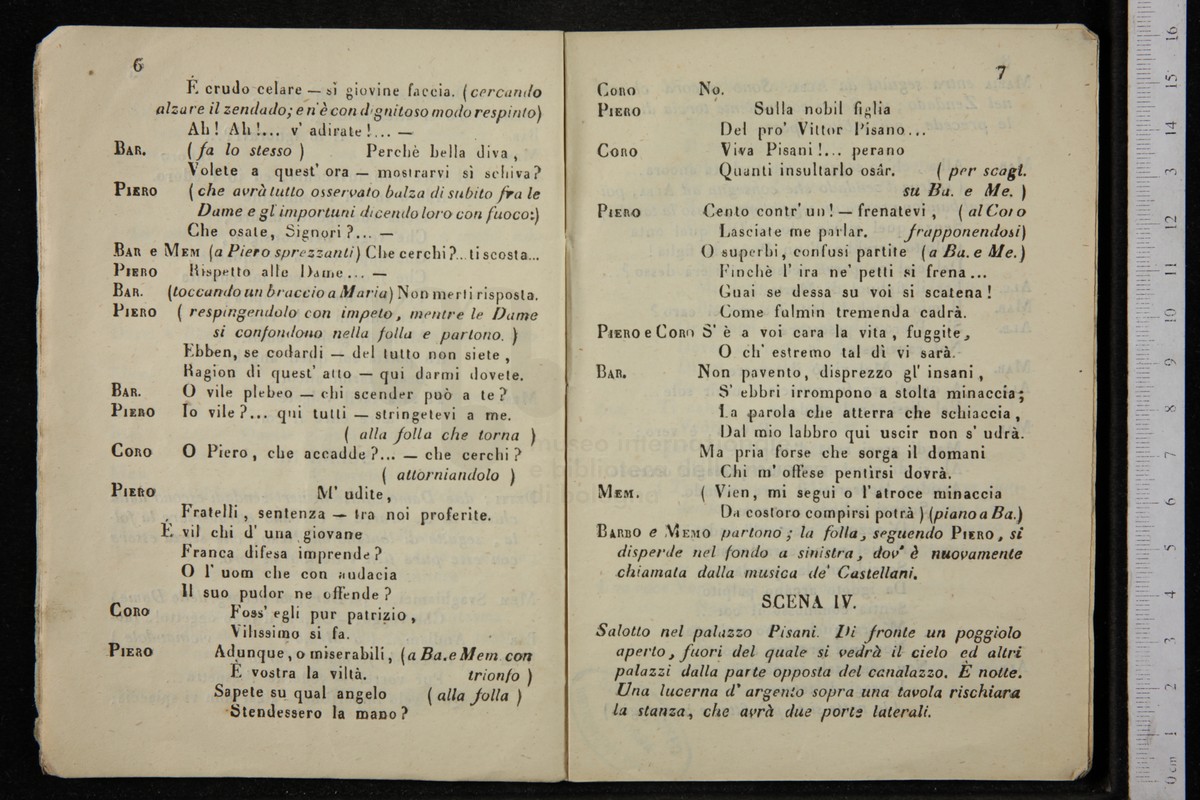 6
È crudo celare — sì giovine faccia. (cercando
alzare il zendado; e n'è con dignitoso modo respinto)
Ah! Ah!... v' adirate!... —
BAR. (fa lo stesso) Perchè bella diva,
Volete a quest' ora — mostrarvi sì schiva?
PIERO (che avrà tutto osservato balza di subito fra le
Dame e gl' importuni dicendo loro con fuoco:)
Che osate, Signori?... —
BAR e MEM (a Piero sprezzanti) Che cerchi?... ti scosta...
PIERO Rispetto alle Dame... —
BAR. (toccando un braccio a Maria) Non merti risposta.
PIERO (respingendolo con impeto, mentre le Dame
si confondono nella folla e partono.)
Ebben, se codardi — del tutto non siete,
Ragion di quest' atto — qui darmi dovete.
BAR. O vile plebeo — chi scender può a te?
PIERO Io vile?... qui tutti — stringetevi a me.
(alla folla che torna)
CORO O Piero, che accadde?... — che cerchi?
(attorniandolo)
PIERO M' udite,
Fratelli, sentenza — tra noi proferite.
È vil chi d' una giovane
Franca difesa imprende?
O l' uom che con audacia
Il suo pudor ne offende?
CORO Foss' egli pur patrizio,
Vilissimo si fa.
PIERO Adunque, o miserabili, (a Ba. e Mem con
È vostra la viltà. trionfo)
Sapete su qual angelo (alla folla)
Stendessero la mano?
7
CORO No.
PIERO Sulla nobil figlia
Del pro' Vittor Pisano...
CORO Viva Pisani!... perano
Quanti insultarlo osâr. (per scagl.
su Ba. e Me.)
PIERO Cento contr' un! — frenatevi, (al Coro
Lasciate me parlar. frapponendosi)
O superbi, confusi partite (a Ba. e Me.)
Finchè l' ira ne' petti si frena...
Guai se dessa su voi si scatena!
Come fulmin tremenda cadrà.
PIERO e CORO S' è a voi cara la vita, fuggite,
O ch' estremo tal dì vi sarà.
BAR. Non pavento, disprezzo gl' insani,
S' ebbri irrompono a stolta minaccia;
La parola che atterra che schiaccia,
Dal mio labbro qui uscir non s' udrà.
Ma pria forse che sorga il domani
Chi m' offese pentirsi dovrà.
MEM. (Vien, mi segui o l' atroce minaccia
Da costoro compirsi potrà) (piano a Ba.)
BARBO e MEMO partono; la folla, seguendo PIERO, si
disperde nel fondo a sinistra, dov' è nuovamente
chiamata dalla musica de' Castellani.
SCENA IV.
Salotto nel palazzo Pisani. Di fronte un poggiolo
aperto, fuori del quale si vedrà il cielo ed altri
palazzi dalla parte opposta del canalazzo. È notte.
Una lucerna d' argento sopra una tavola rischiara
la stanza, che avrà due porte laterali.
museo internazionale
e biblioteca della musica
di bologna
0 cm 1 2 3 4 5 6 7 8 9 10 11 12 13 14 15 16